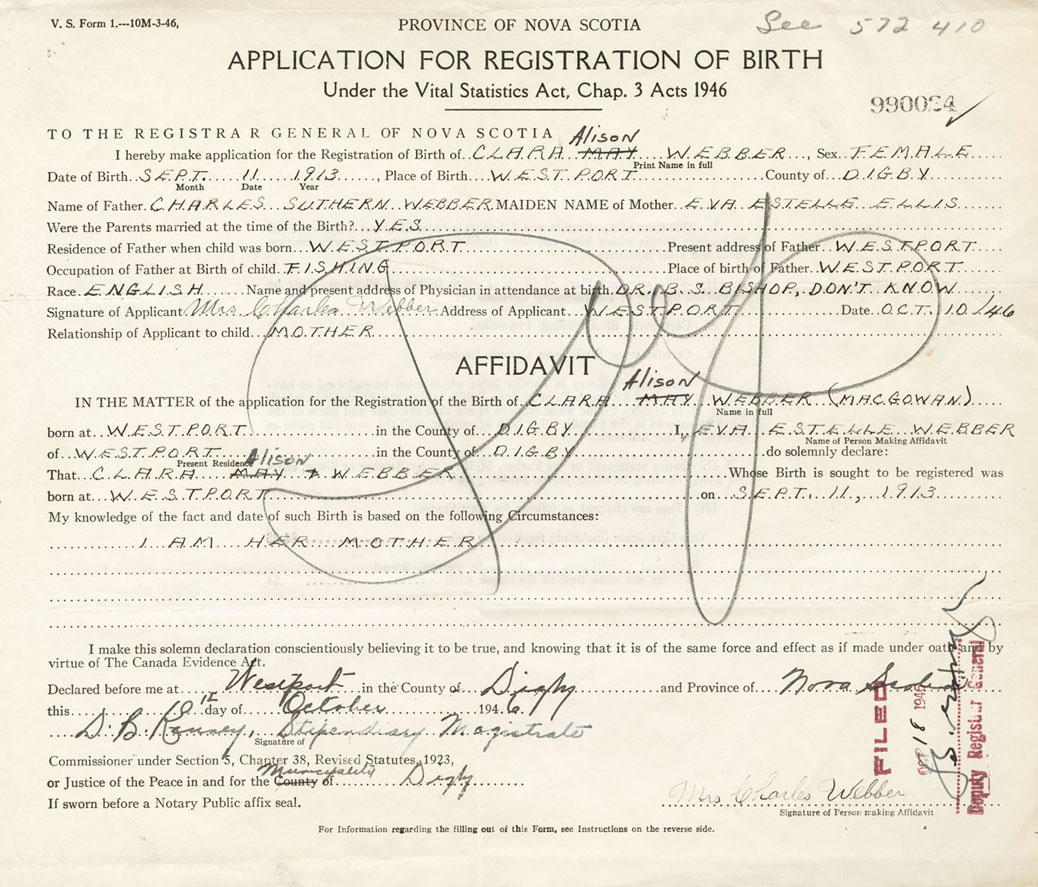 V. S. Form 1.---10M-3-46,
PROVINCE OF NOVA SCOTIA
See 572 410
APPLICATION FOR REGISTRATION OF BIRTH
Under the Vital Statistics Act, Chap. 3 Acts 1946
990024
TO THE REGISTRAR GENERAL OF NOVA SCOTIA
Alison
I hereby make application for the Registration of Birth of CLARA MAY WEBBER, Sex FEMALE
Print Name in full
Date of Birth SEPT. 11 1913, Place of Birth WESTPORT County of DIGBY
Month Date Year
Name of Father CHARLES SUTHERN WEBBER MAIDEN NAME of Mother EVA ESTELLE ELLIS
Were the Parents married at the time of the Birth? YES
Residence of Father when child was born WESTPORT Present address of Father WESTPORT
Occupation of Father at Birth of child FISHING Place of birth of Father WESTPORT
Race ENGLISH Name and present address of Physician in attendance at birth DR. B. S. BISHOP, DON'T KNOW
Signature of Applicant Mrs Charles Webber Address of Applicant WESTPORT Date OCT. 10/46
Relationship of Applicant to child MOTHER
Reg
AFFIDAVIT
Alison
IN THE MATTER of the application for the Registration of the Birth of CLARA MAY WEBBER (MACGOWAN)
Name in full
born at WESTPORT in the County of DIGBY I, EVA ESTELLE WEBBER
Name of Person Making Affidavit
of WESTPORT in the County of DIGBY do solemnly declare:
Present Residence
Alison
That CLARA MAY WEBBER Whose Birth is sought to be registered was
born at WESTPORT on SEPT. 11, 1913
My knowledge of the fact and date of such Birth is based on the following Circumstances:
I AM HER MOTHER
I make this solemn declaration conscientiously believing it to be true, and knowing that it is of the same force and effect as if made under oath and by
virtue of The Canada Evidence Act.
Declared before me at Westport in the County of Digby and Province of Nova Scotia
this 10th day of October 1946.
D B Kenney, Stipendiary Magistrate
Signature of
Commissioner under Section 5, Chapter 38, Revised Statutes, 1923,
Municipality
or Justice of the Peace in and for the County of Digby
If sworn before a Notary Public affix seal.
Mrs Charles Webber
Signature of Person making Affidavit
FILED
OCT 18 1946
Deputy Registrar General
For Information regarding the filling out of this Form, see Instructions on the reverse side.